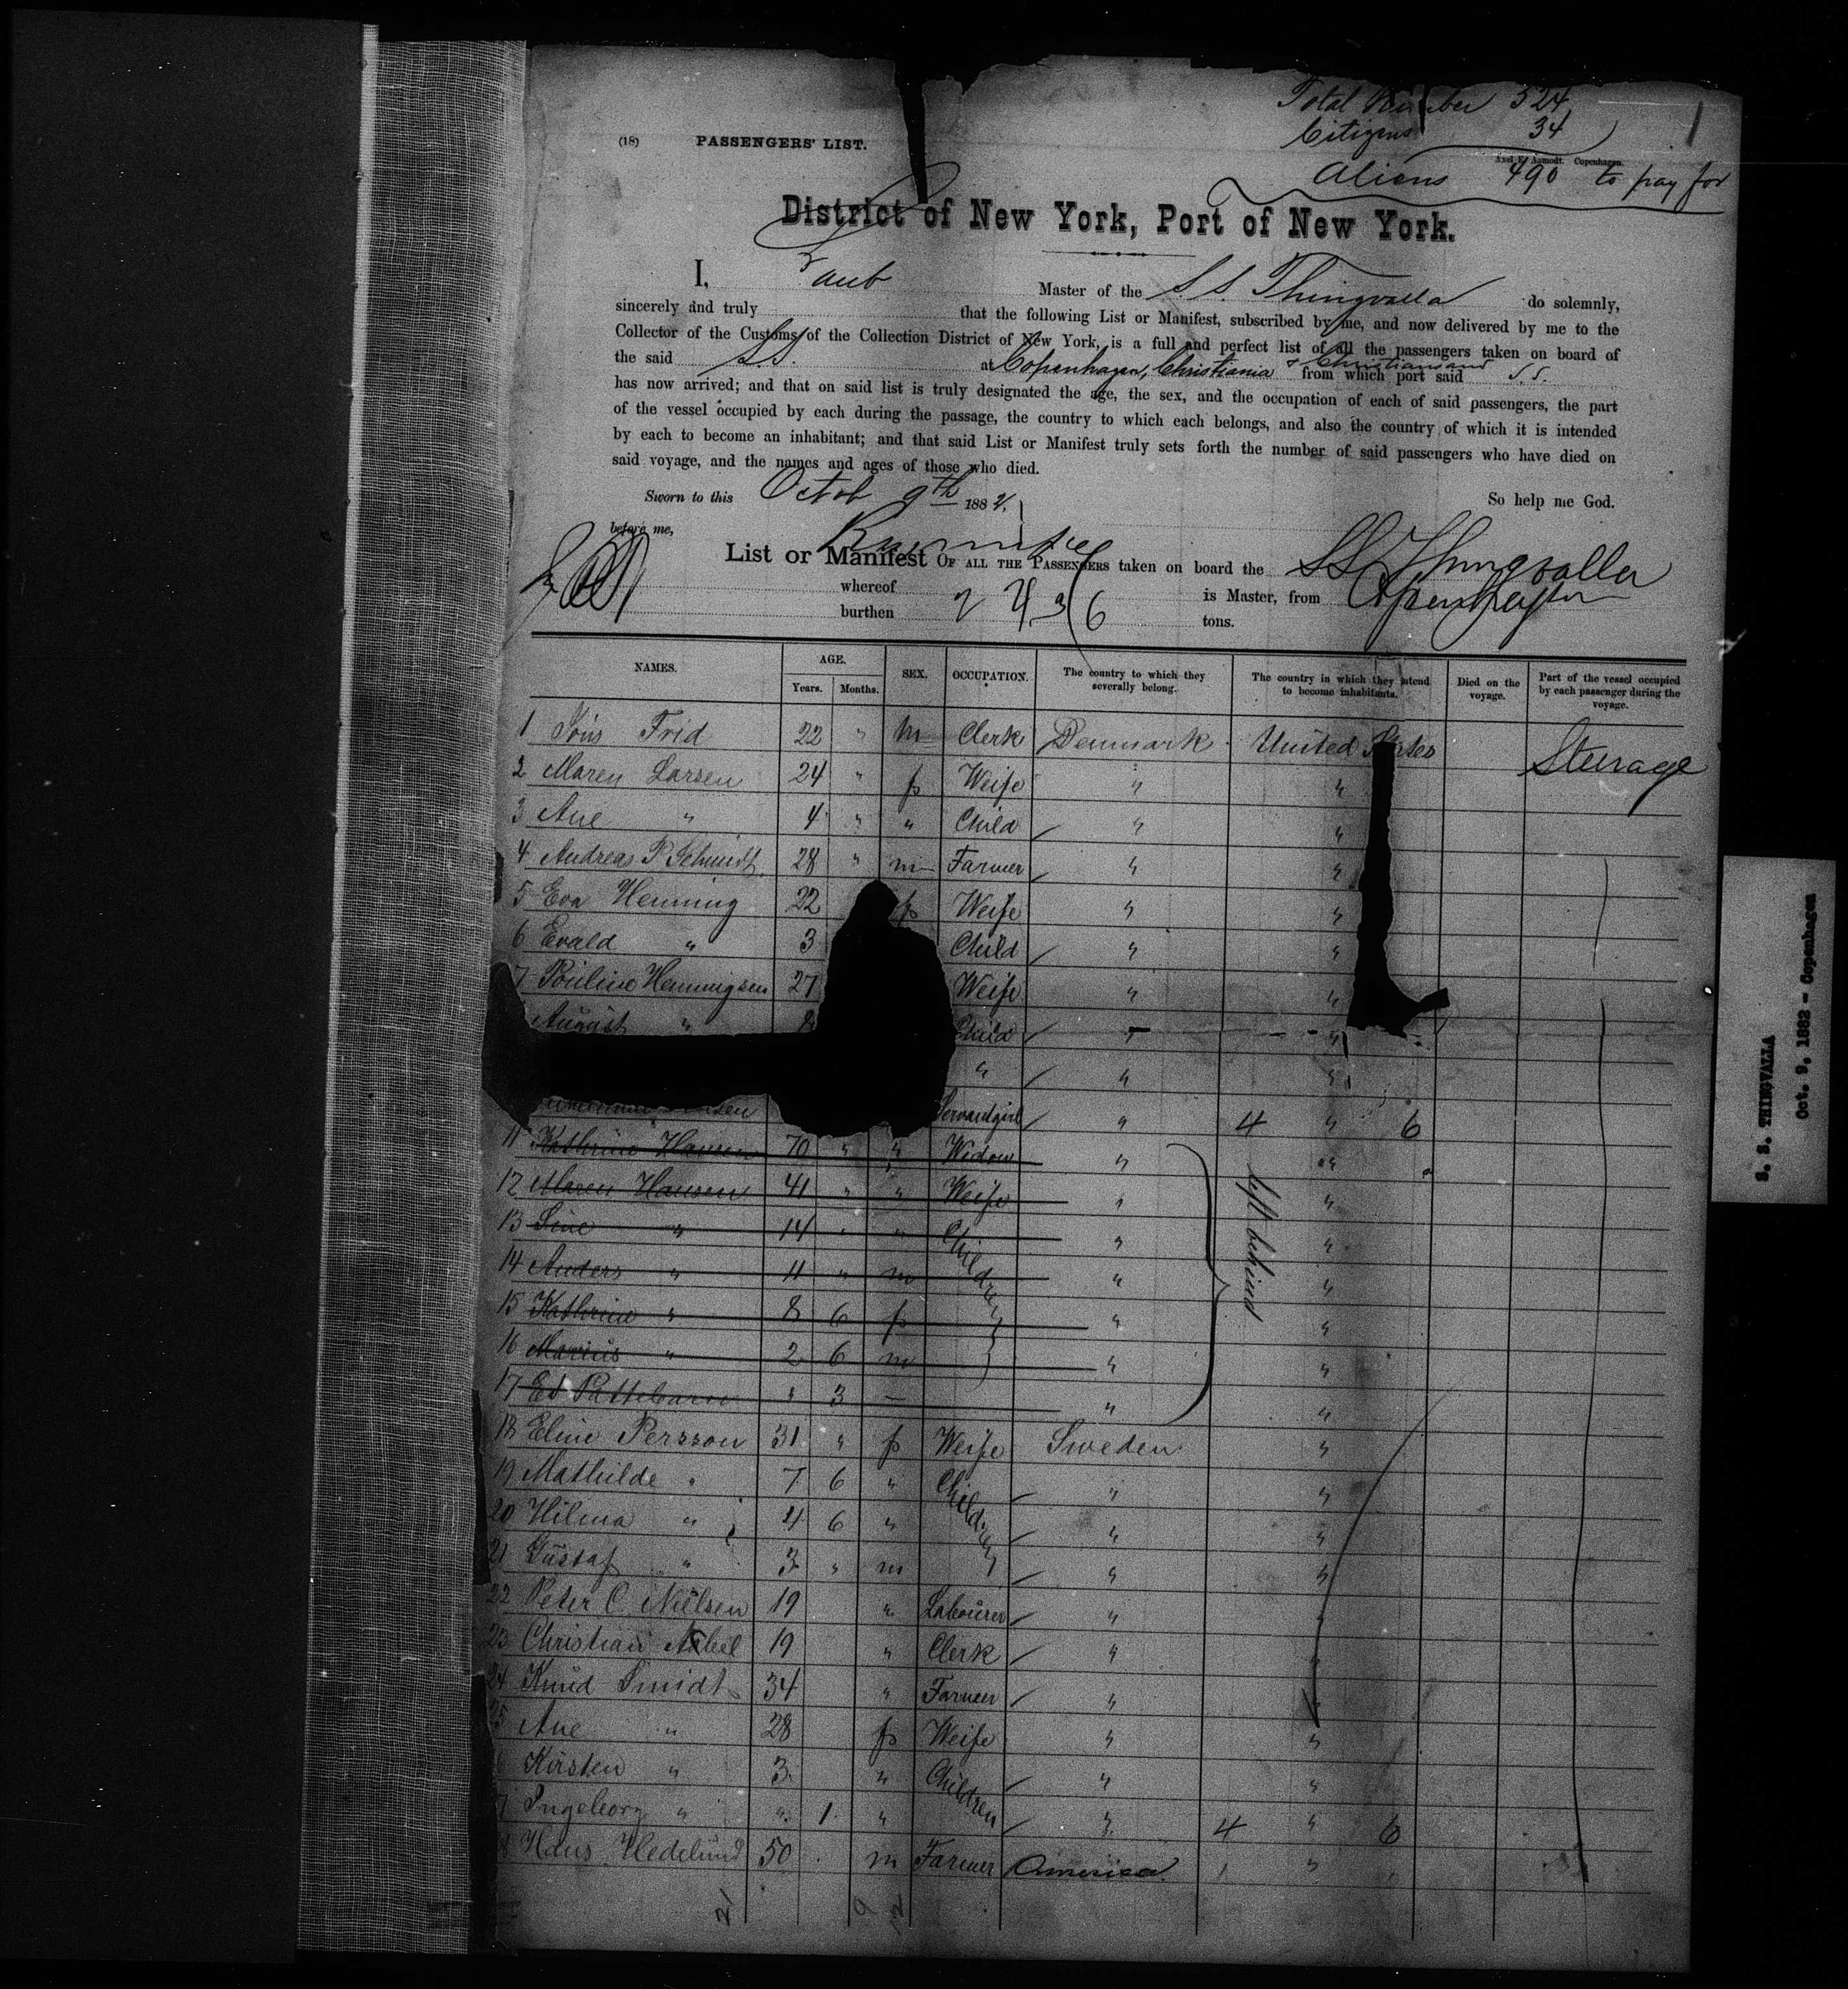 Total Number 524
Citizens 34
Axel E. Aamodt. Copenhagen.
Aliens 490 to pay for
1
(18) PASSENGERS' LIST.
District of New York, Port of New York.
I, Laub Master of the S. S. Thingvalla do solemnly,
sincerely and truly that the following List or Manifest, subscribed by me, and now delivered by me to the
Collector of the Customs of the Collection District of New York, is a full and perfect list of all the passengers taken on board of
the said S.S. at Copenhagen, Christiania & Christiansand from which port said S.S.
has now arrived; and that on said list is truly designated the age, the sex, and the occupation of each of said passengers, the part
of the vessel occupied by each during the passage, the country to which each belongs, and also the country of which it is intended
by each to become an inhabitant; and that said List or Manifest truly sets forth the number of said passengers who have died on
said voyage, and the names and ages of those who died.
Sworn to this Octob 9th 1882, So help me God.
before me,
List or Manifest OF ALL THE PASSENGERS taken on board the SS Thingvalla
whereof is Master, from Copenhagen
burthen tons.
NAMES. AGE. Years. Months. SEX. OCCUPATION. The country to which they severally belong. The country in which they intend to become inhabitants. Died on the voyage. Part of the vessel occupied by each passenger during the voyage.
1 Frid 22 " m Clerk Denmark United States Steerage
2 Maren Larsen 24 " f Weife " "
3 Ane " 4 " " Child " "
4 Andreas P. Schmidt 28 " m Farmer " "
5 Eva Henning 22 f Weife " "
6 Evald " 3 Child " "
7 Pouline Henningsen 27 Weife " "
August " Child " "
" " "
Servantgirl " 4 " 6
11 Kathrine Hansen 70 " " Widow " "
12 Maren Hansen 41 " " Weife " "
13 Sine " 14 " " Children " "
14 Anders " 11 " m " "
15 Kathrine " 8 6 f " "
16 Marius " 2 6 m " "
17 Et Pattebarn " 3 — " "
left behind
18 Eline Persson 31 " f Weife Sweden "
19 Mathilde " 7 6 " Children " "
20 Hilma " 4 6 " " "
21 Gustaf " 3 " m " "
22 Peter C. Nielsen 19 " Labourer " "
23 Christian 19 " Clerk " "
24 Knud Smidt 34 " Farmer " "
25 Ane " 28 f Weife " "
6 Kirsten " 3 " Children " "
7 Ingeborg " " 1 " " 4 " 6
8 Hans Hedelund 50 m Farmer America "
S. S. THINGVALLA
Oct. 9, 1882 - Copenhagen